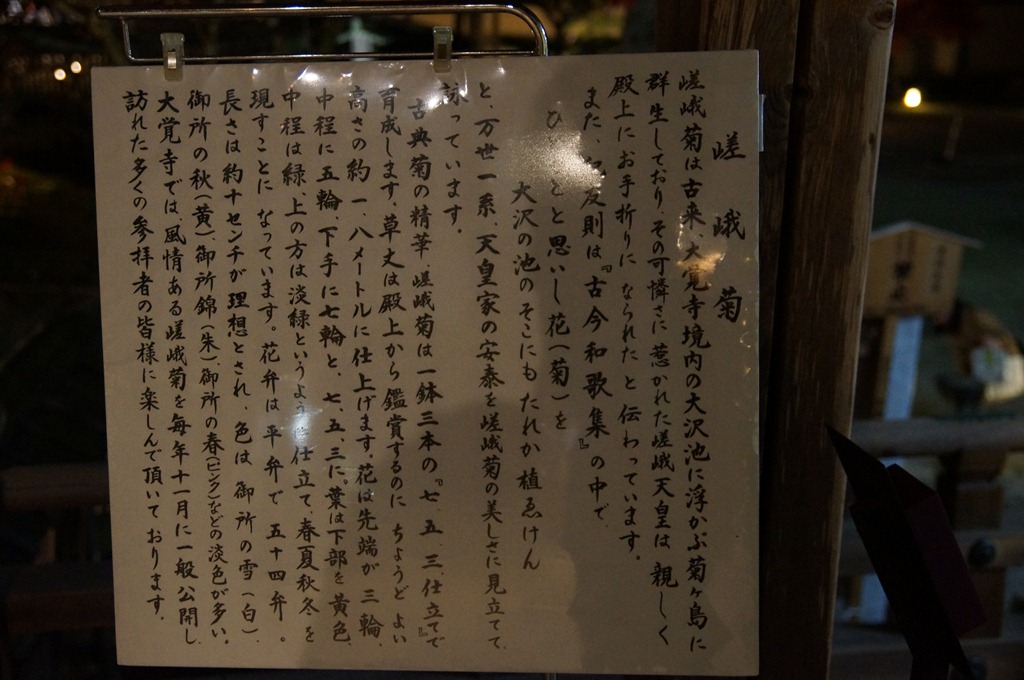 嵯峨菊
嵯峨菊は古来、大覚寺境内の大沢池に浮かぶ菊ヶ島に
群生しており、その可憐さに惹かれた嵯峨天皇は親しく
殿上にお手折りになられたと伝わっています。
また、友則は、『古今和歌集』の中で、
ひと思いし花(菊)を
大沢の池のそこにもたれか植ゑけん
と、万世一系、天皇家の安泰を嵯峨菊の美しさに見立てて、
詠っています。
古典菊の精華、嵯峨菊は一鉢三本の、『七五三仕立て』で
育成します。草丈は殿上から鑑賞するのにちょうどよい
高さの約一、八メートルに仕上げます。花は先端が三輪、
中程に五輪、下手に七輪と、七、五、三に。葉は下部を黄色、
中程は緑、上の方は淡緑というように仕立て、春夏秋冬を
現すことになっています。花弁は平弁で五十四弁。
長さは約十センチが理想とされ、色は、御所の雪(白)、
御所の秋(黄)、御所錦(朱)、御所の春(ピンク)などの淡色が多い。
大覚寺では、風情ある嵯峨菊を毎年十一月に一般公開し、
訪れた多くの参拝者の皆様に楽しんで頂いております。